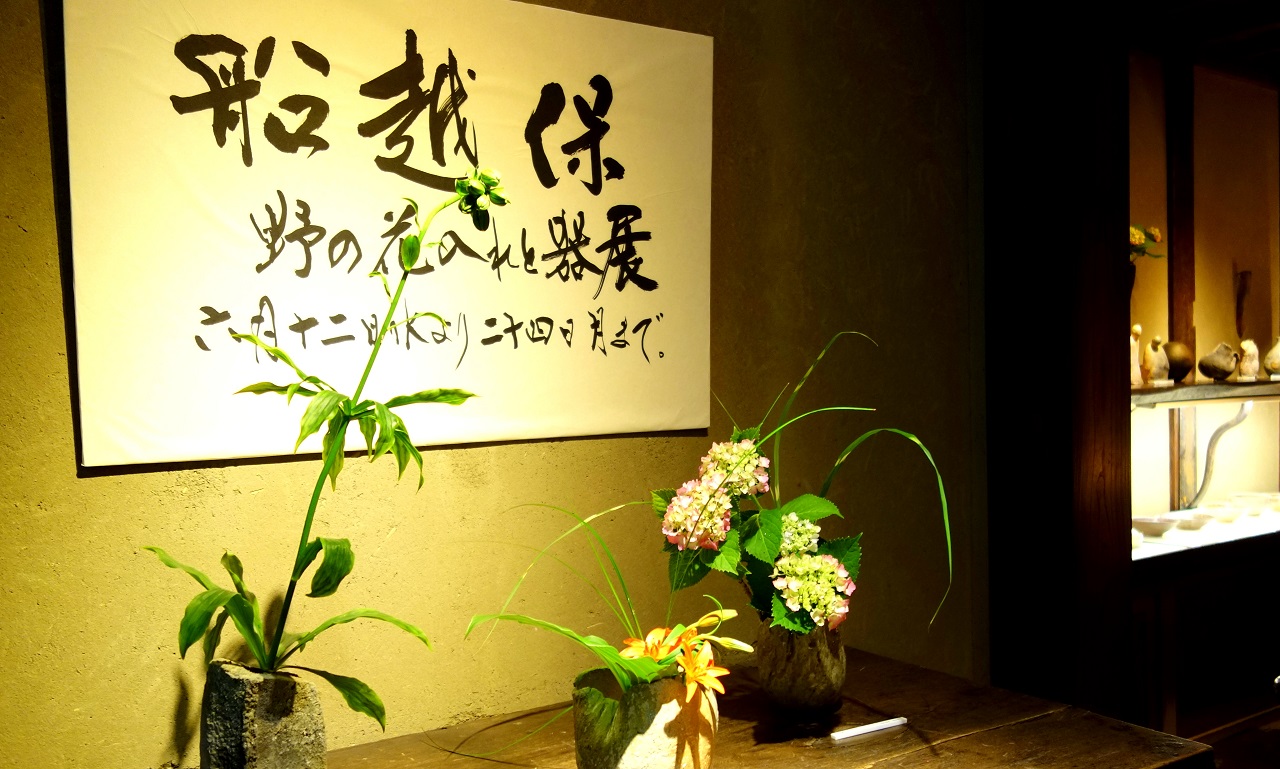 船越保
野の花入れと器展
六月十二日水より二十四日月まで。